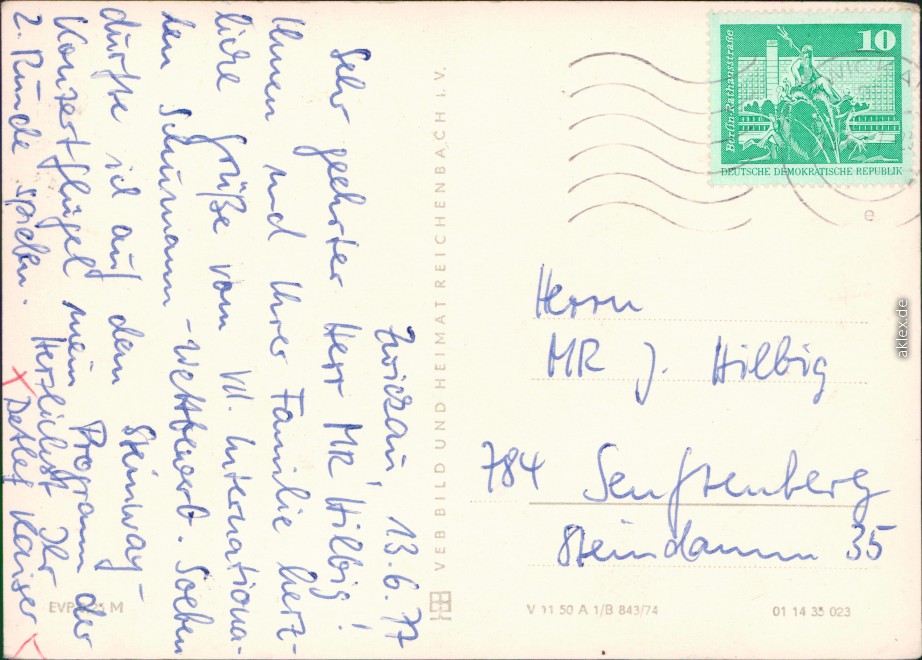 Zwickau, 13.6.77
Sehr geehrter Herr MR Hilbig!
Ihnen und Ihrer Familie herz-
liche Grüße vom VII. Internationa-
len Schumann-Wettbewerb. Soeben
durfte ich auf dem Steinway-
Konzertflügel mein Programm der
2. Runde spielen.
Herzlichst Ihr
Detlef Kaiser
EVP 0,25 M
VEB BILD UND HEIMAT REICHENBACH I. V.
Berlin-Rathausstraße
10
DEUTSCHE DEMOKRATISCHE REPUBLIK
e
Herrn
MR J. Hilbig
784 Senftenberg
Steindamm 35
V 11 50 A 1/B 843/74
01 14 35 023
aklex.de